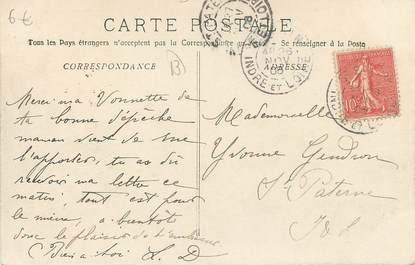 6€
CARTE POSTALE
Tous les Pays étrangers n'acceptent pas la Correspondance au recto — Se renseigner à la Poste
CORRESPONDANCE
13
ADRESSE
INDRE ET LOIRE
10
Merci ma Vonnette de
ta bonne dépêche
maman vient de me
l'apporter, tu as dû
recevoir ma lettre ce
matin, tout est pour
le mieux, a bientôt
donc le plaisir de t'embrasser
Bien a toi L. D
Mademoiselle
Yvonne Gendron
St Paterne
I & L